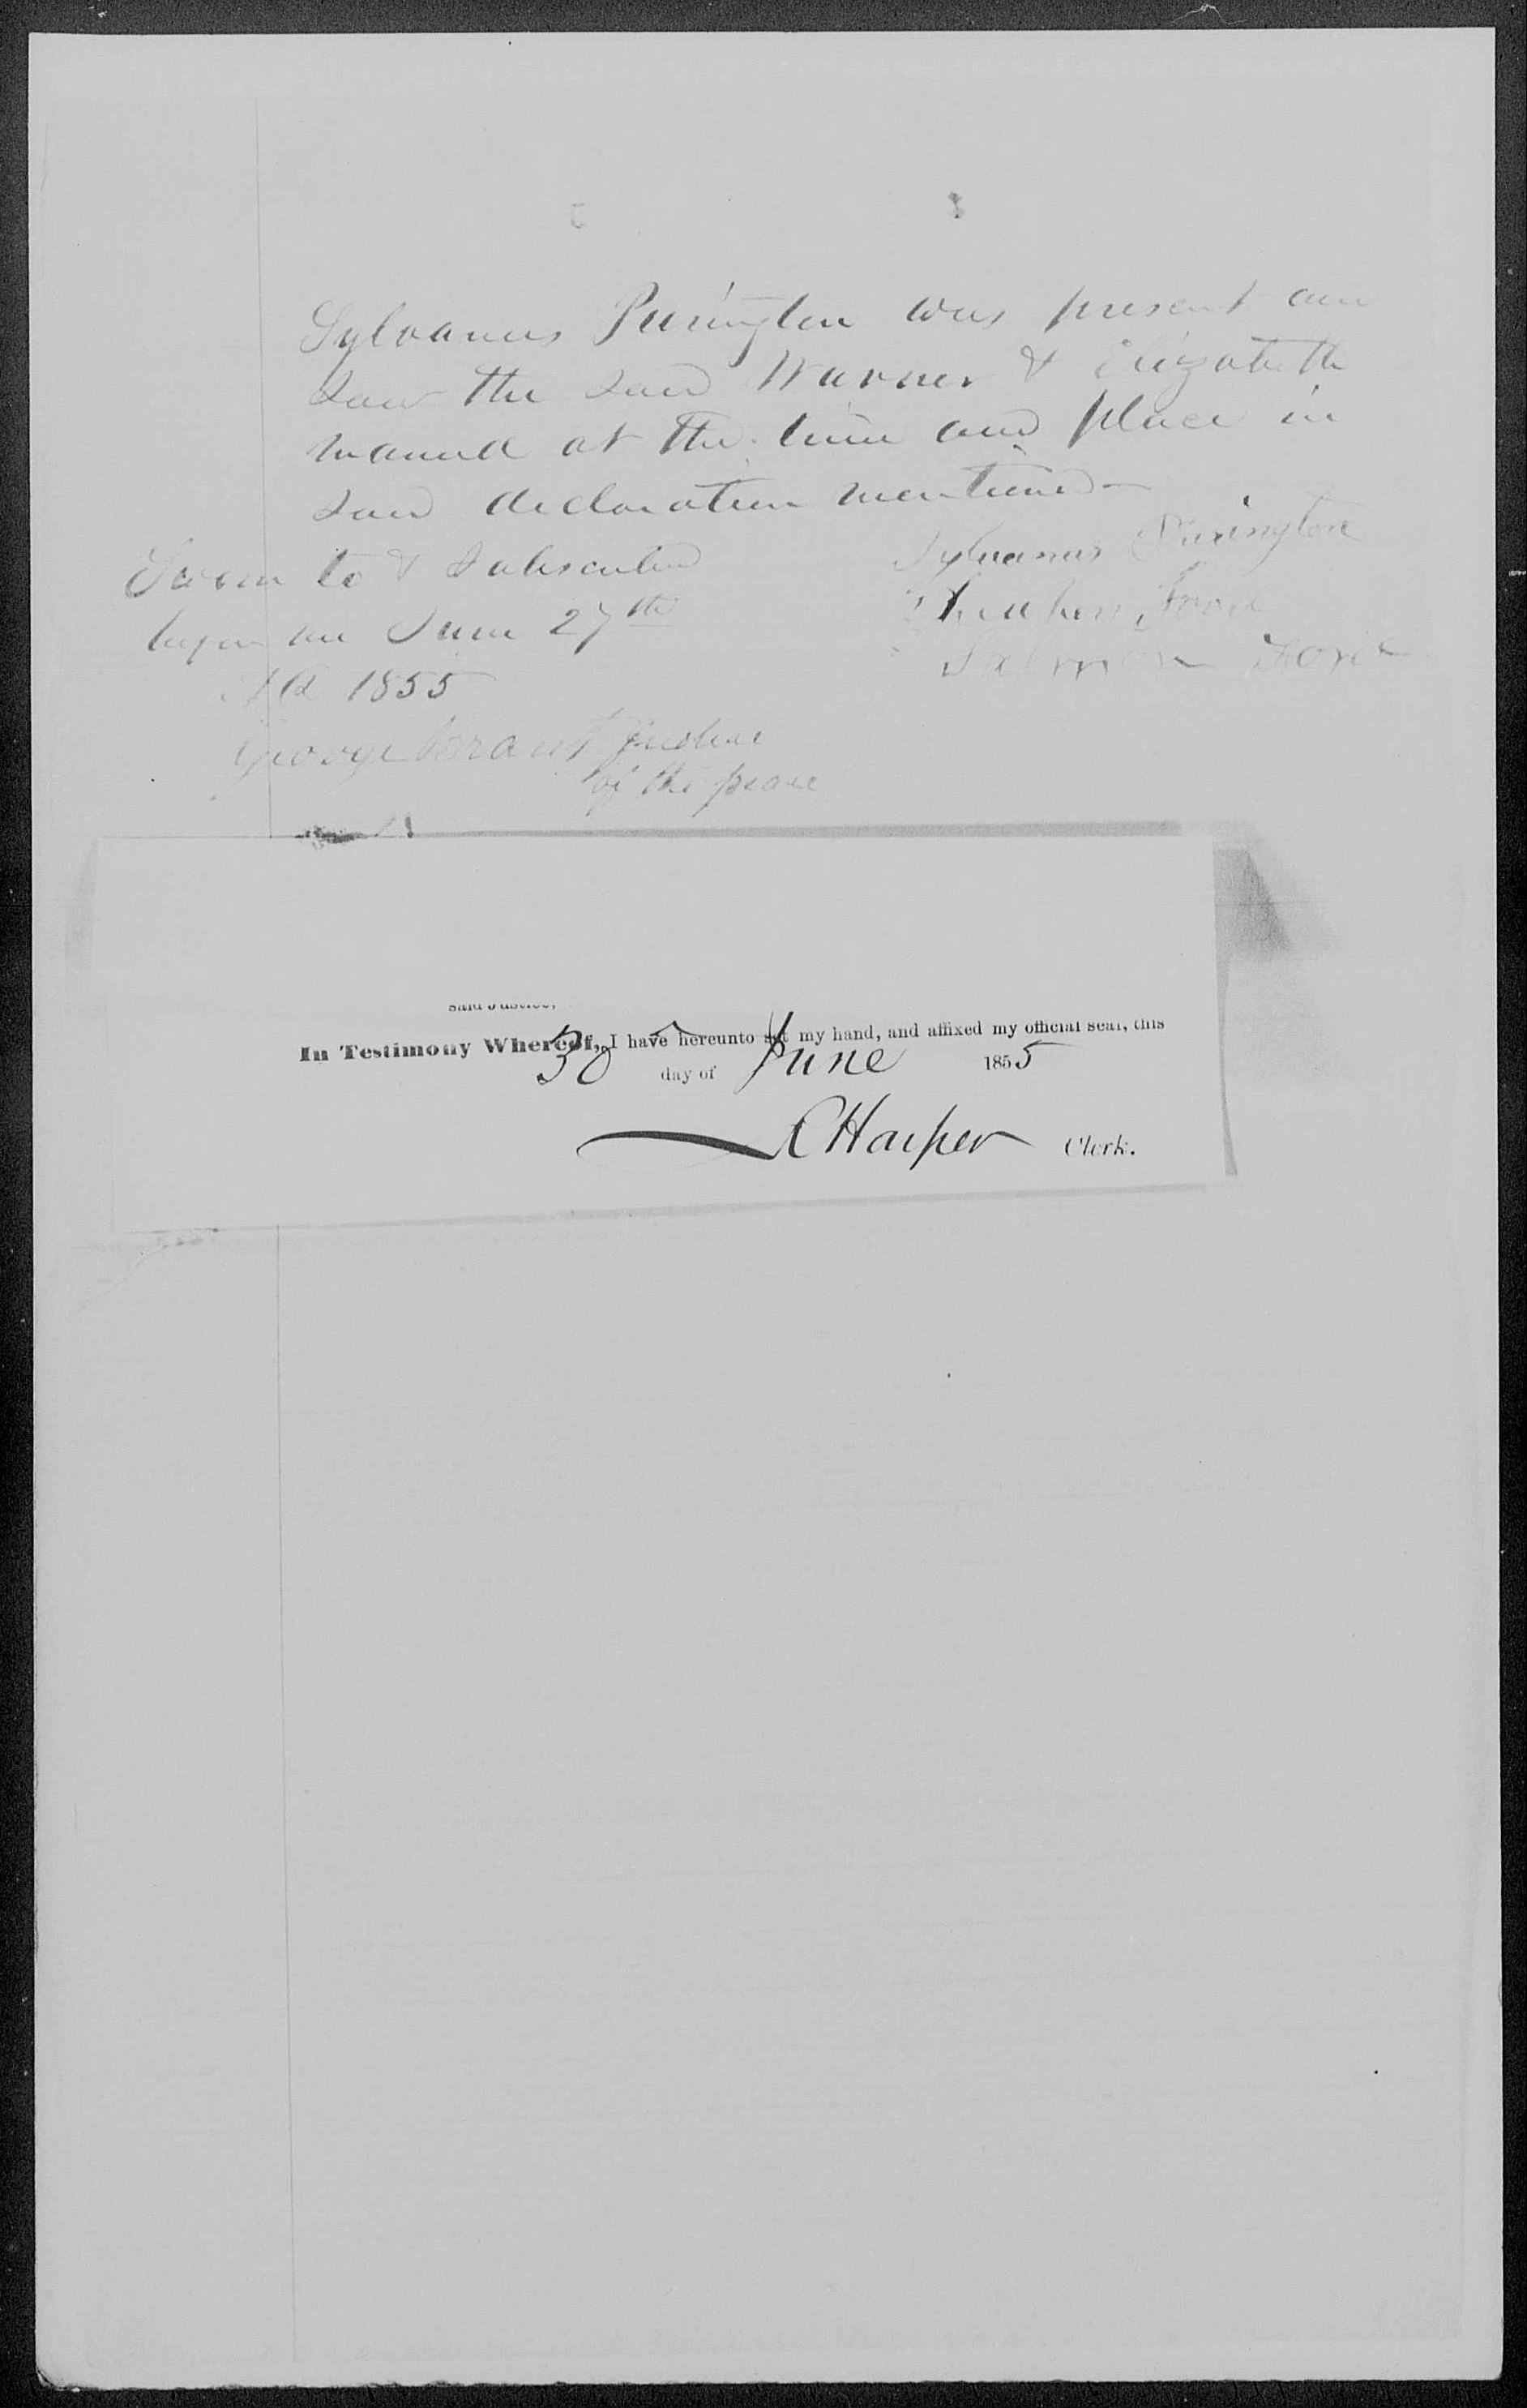 Sylvanus Purington was present and
saw the said Warner & Elizabeth
married at the time and place in
said declaration mentioned —
Sylvanus Purington
Sworn to & Subscribed
Reuben Ford
before me June 27th
Salmon Ford
AD 1855
George Brant Justice
of the peace
said Justice,
In Testimony Whereof, I have hereunto set my hand, and affixed my official seal, this
30 day of June 1855
C Harper Clerk.